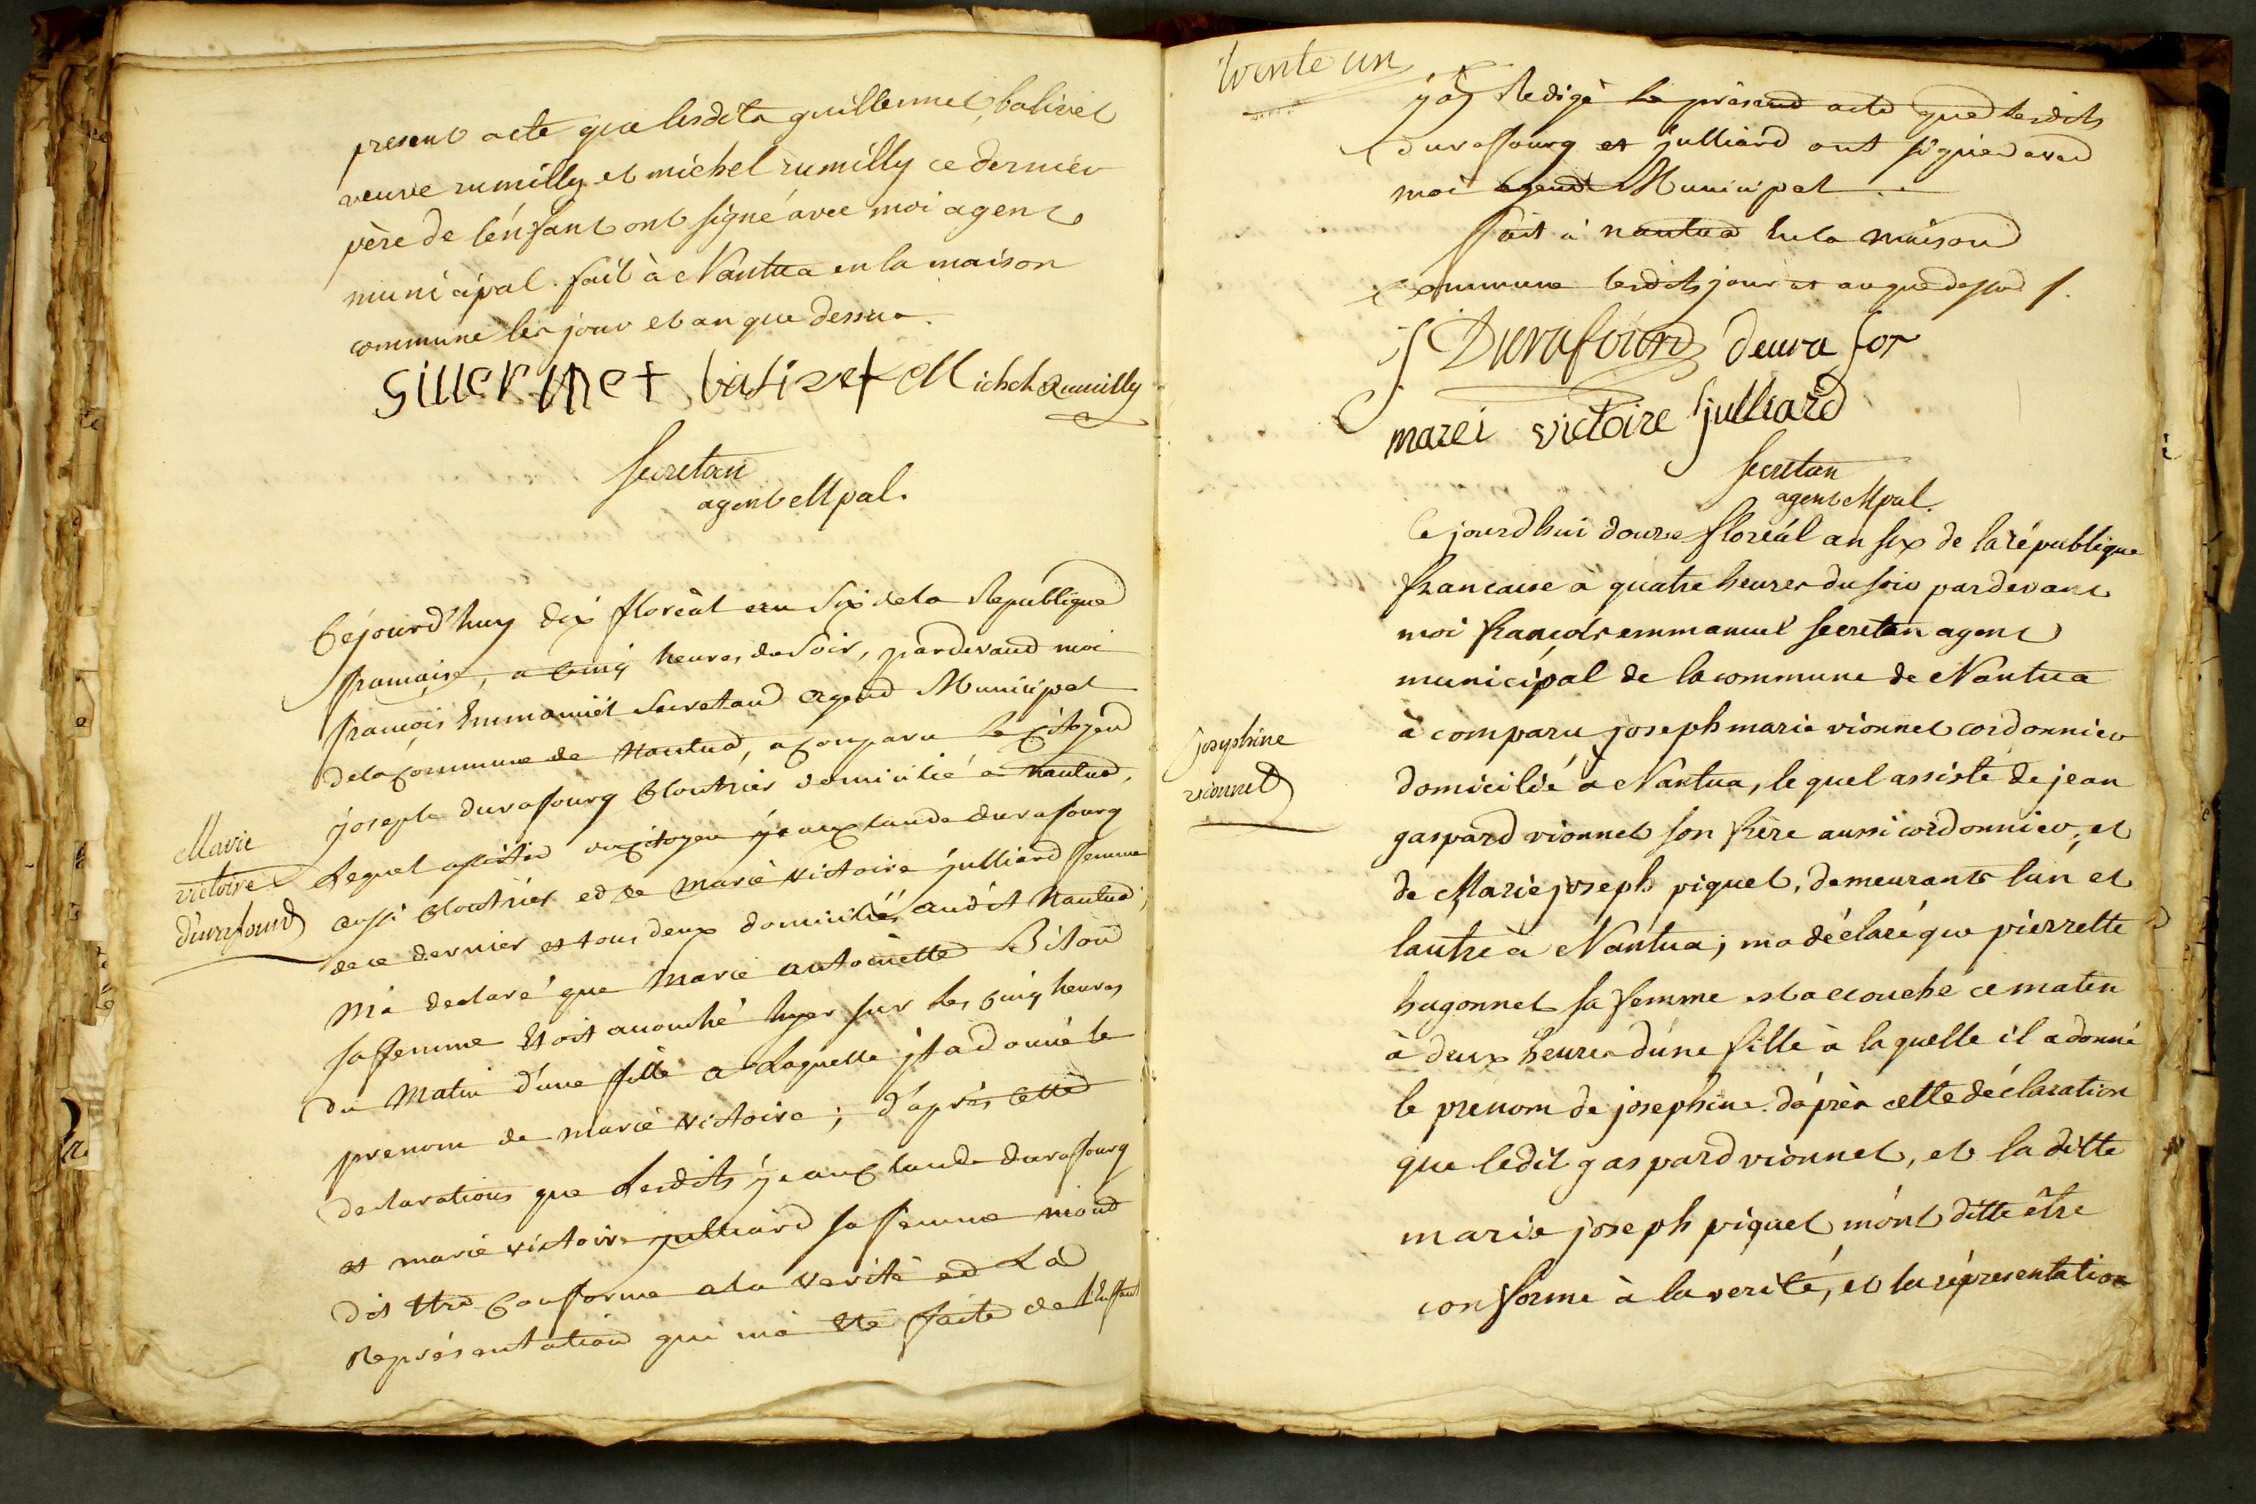 present acte que lesdits guillermet, balivet
veuve rumilly et michel rumilly ce dernier
père de l'énfant ont signé avec moi agent
municipal. fait à Nantua en la maison
commune les jour et an que dessus.
Gillermet balivet Michel Rumilly
Secretan
agent Mpal.
Marie
victoire
durafourd
Cejourd'huy dix floréal an Six de la Republique
française, a Cinq heures du Soir, pardevand moi
françois Emmanuël Secretand agend Municipal
dela Commune de Nantua, a Comparu le Citoyen
joseph durafourg Cloutrier domicilié a nantua,
Lequel assisté du Citoyen jean Claude durafourg
aussi Cloutrier ed de marie victoire julliard femme
de ce dernier et tous deux domiciliés audit Nantua,
m'a declaré que marie antoinette Biton
sa femme Etoit acouché hyer sur les Cinq heures
du Matin d'une fille a Laquelle jl a donné le
prenom de marie victoire; d'après Cette
declarations que Lesdits jean Claude durafourg
et marie victoire julliard sa femme mond
dit Etre Conforme a la verité ed La
Représentation qui m'a Eté faite de l'Enfant
trente un
j'ay Redigé le présend acte que lesdits
durafourg et julliard ont signé aved
moi agend Municipal
fait à nantua En la maison
Commune lesdits jour et an que dessus /.
J Durafourd deurafor
marei victoire julliard
Secretan
agent Mpal.
josephine
vionnet
Ce jourdhui douze floréal an six de la république
francaise a quatre heures du soir pardevant
moi françois emmanuel secretan agent
municipal de la commune de Nantua
à comparu joseph marie vionnet cordonnier
domicilié a Nantua, lequel assisté de jean
gaspard vionnet son frère aussi cordonnier, et
de Marie joseph piquet, demeurants lún et
lautre à Nantua; ma déclaré que pierrette
hugonnet sa femme est accouché ce matin
à deux heures dúne fille à laquelle il a donné
le prenom de josephine. d'áprès cette déclaration
que ledit gaspard vionnet, et la ditte
marie joseph piquet, mónt ditte être
conforme à la verité, et la réprésentation